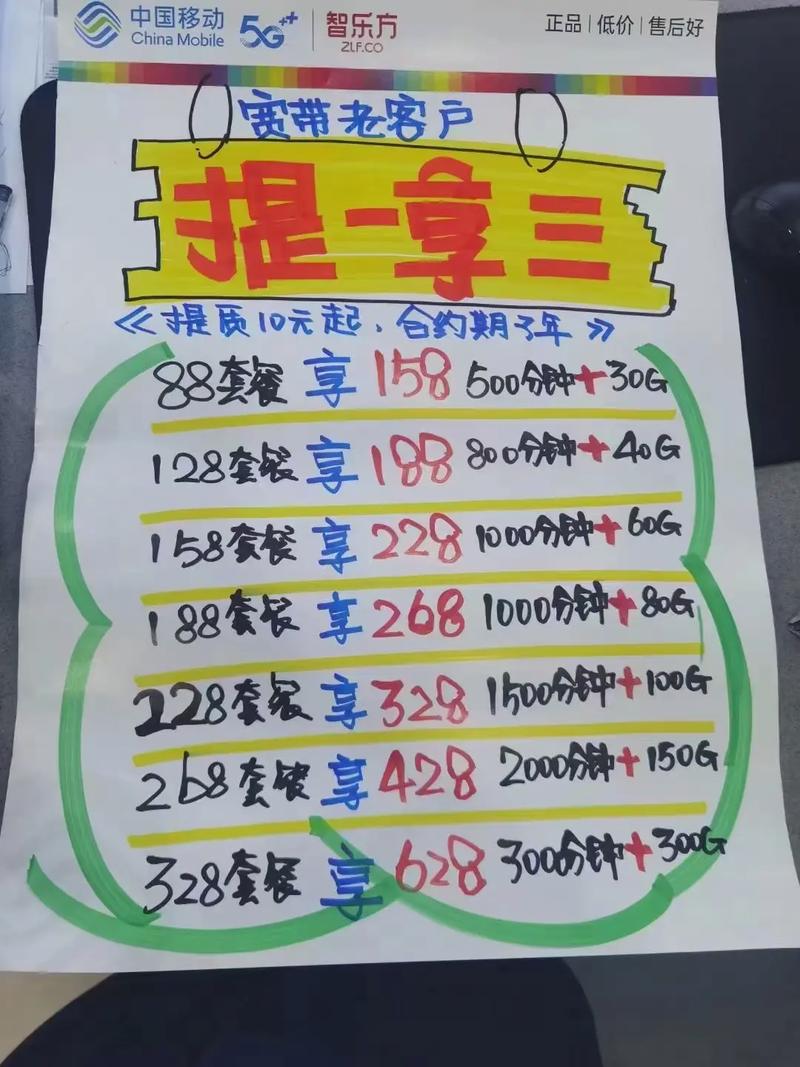 中国移动 China Mobile 5G++ 智乐方 ZLF.CO 正品|低价|售后好
宽带老客户
提一享三
《提质10元起,合约期3年》
88套餐 享 158 500分钟+30G
128套餐 享 188 800分钟+40G
158套餐 享 228 1000分钟+60G
188套餐 享 268 1000分钟+80G
228套餐 享 328 1500分钟+100G
268套餐 享 428 2000分钟+150G
328套餐 享 628 300分钟+300G